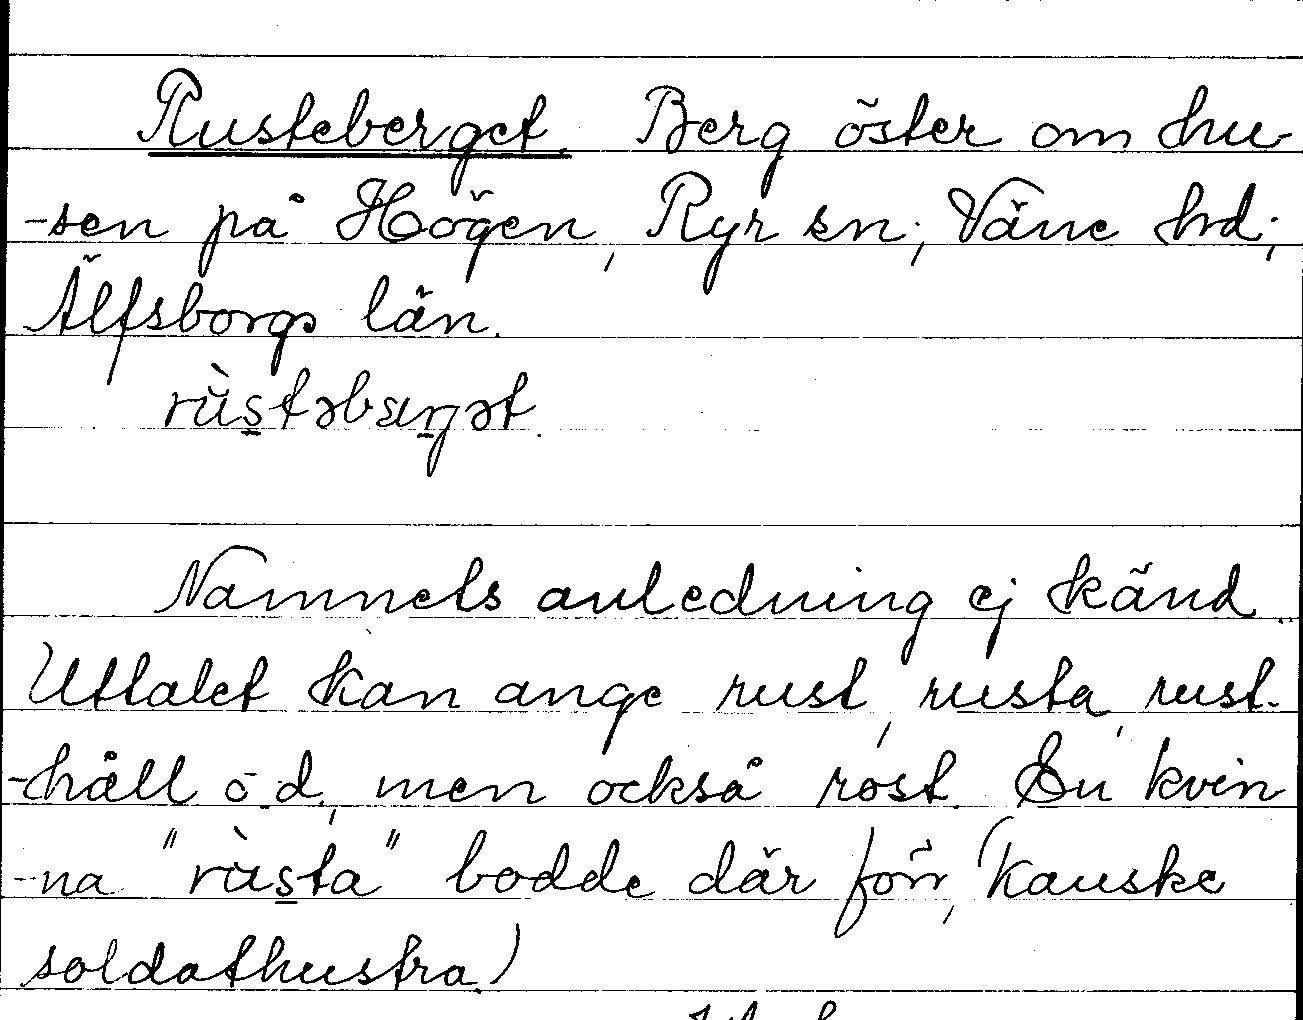 Rusteberget. Berg öster om hu-
-sen på Högen, Ryr sn; Väne hd;
Älfsborgs län.
rùstəbærjət.
Namnets anledning ej känd.
Uttalet kan ange rust, rusta, rust-
-håll o.d., men också rost. En kvin
-na "rùsta" bodde där förr, (kanske
soldathustra.)